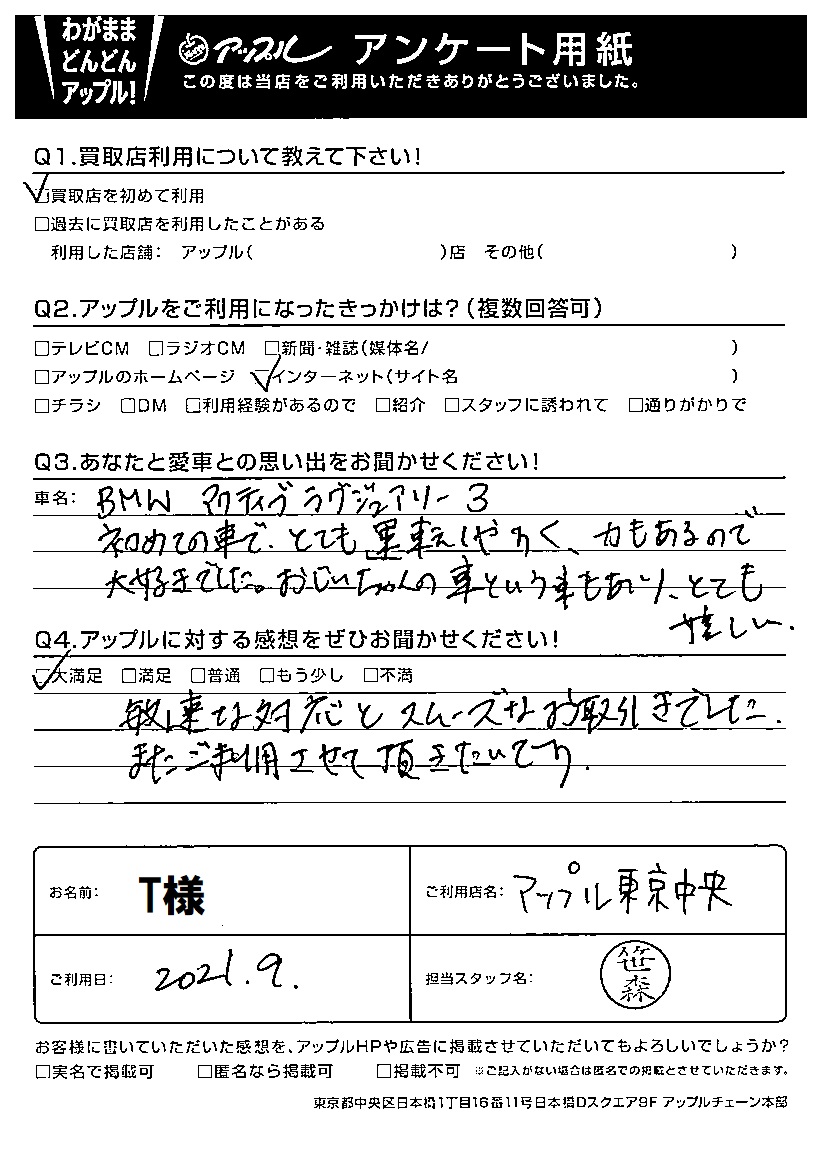 わがまま
どんどん
アップル!
アップル アンケート用紙
この度は当店をご利用いただきありがとうございました。
Q1.買取店利用について教えて下さい!
☑買取店を初めて利用
□過去に買取店を利用したことがある
利用した店舗: アップル( )店 その他( )
Q2.アップルをご利用になったきっかけは?(複数回答可)
□テレビCM □ラジオCM □新聞・雑誌(媒体名/ )
□アップルのホームページ ☑インターネット(サイト名 )
□チラシ □DM □利用経験があるので □紹介 □スタッフに誘われて □通りがかりで
Q3.あなたと愛車との思い出をお聞かせください!
車名: BMW アクティブ ラグジュアリー 3
初めての車で、とても運転しやすく、力もあるので
大好きでした。おじいちゃんの車という事もあり、とても
嬉しい.
Q4.アップルに対する感想をぜひお聞かせください!
☑大満足 □満足 □普通 □もう少し □不満
敏速な対応とスムーズなお取引きでした.
またご利用させて頂きたいです.
お名前: T様
ご利用店名: アップル東京中央
ご利用日: 2021.9.
担当スタッフ名: 笹森
お客様に書いていただいた感想を、アップルHPや広告に掲載させていただいてもよろしいでしょうか?
□実名で掲載可 □匿名なら掲載可 □掲載不可 ※ご記入がない場合は匿名での掲載とさせていただきます。
東京都中央区日本橋1丁目16番11号日本橋Dスクエア9F アップルチェーン本部